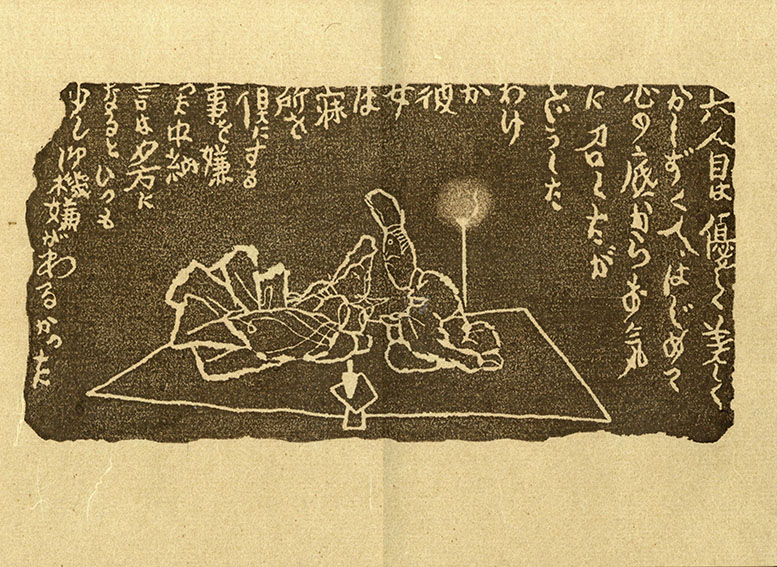 六人目は優しく美しく
かしずく人、はじめて
心の底からお気
に召したが
どうした
わけ
か
彼
女
は
寐
所を
倶にする
事を嫌
った中納
言は夕方に
なるといつも
少し御機嫌がわるかった